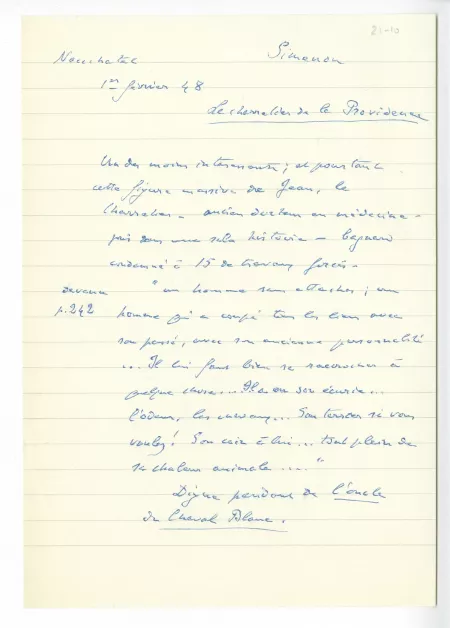 21-10
Neuchatel Simenon
1er février 48
Le charretier de la Providence
Un des moins intéressants ; et pourtant
cette figure massive de Jean, le
charretier - ancien docteur en médecine -
pris dans une sale histoire -
condamné à 15 de travaux forcés -
devenu "un homme sans attaches ; un
p.242 homme qui a coupé tous les liens avec
son passé, avec son ancienne personnalité
... Il lui faut bien se raccrocher à
quelque chose... Il a eu son écurie...
l'odeur, les chevaux... Son terrier si vous
voulez ! Son coin à lui... tout plein de
sa chaleur animale ...."
Digne pendant de l'oncle
du Cheval Blanc.